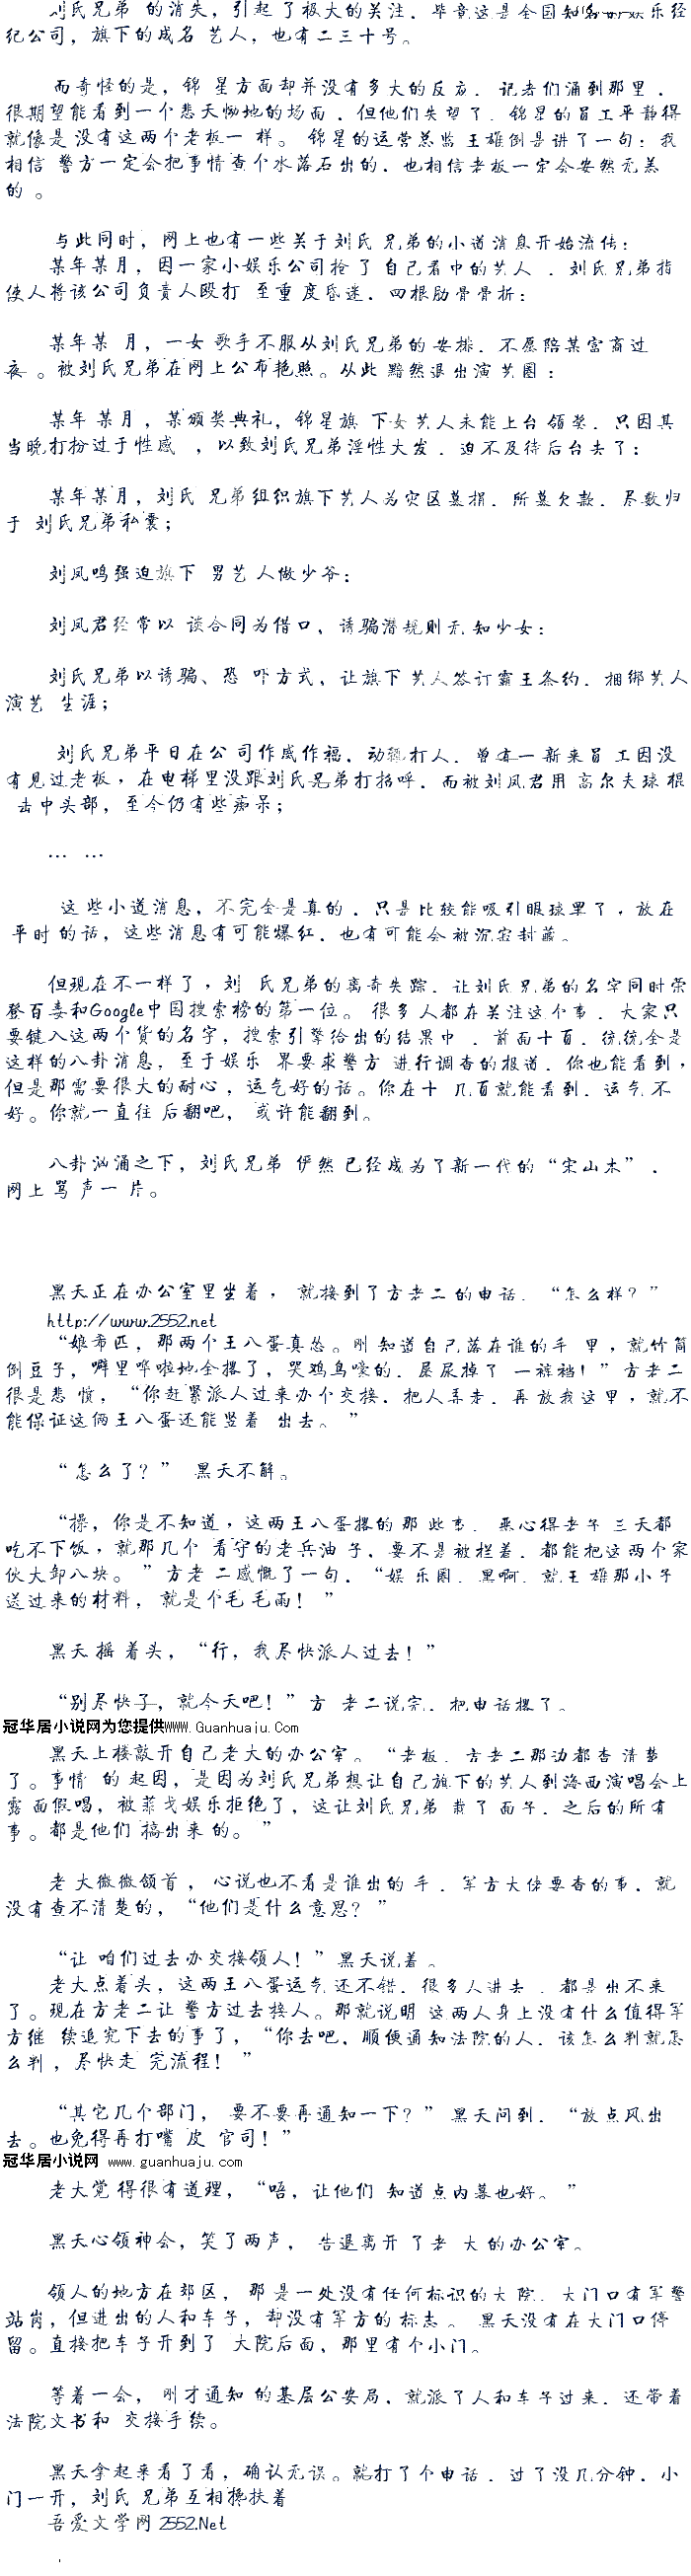 刘氏兄弟 的消失，引起了极大的关注．毕竟这是全国知名的娱乐经
纪公司，旗下的成名 艺人，也有二三十号。
而奇怪的是，锦 星方面却并没有多大的反应．记者们涌到那里．
很期望能看到一个悲天恸地的场面．但他们失望了．锦星的员工平静得
就像是没有这两个老板一 样。 锦星的运营总监王雄倒是讲了一句：我
相信 警方一定会把事情查个水落石出的．也相信老板一定会安然无恙
的 。
与此同时，网上也有一些关于刘氏兄弟的小道消息开始流传：
某年某月，因一家小娱乐公司抢了自己看中的艺人 ．刘氏兄弟指
使人将该公司负责人殴打 至重度昏迷．四根肋骨骨折：
某年某 月，一女 歌手不服从刘氏兄弟的安排．不愿陪某富商过
夜 。被刘氏兄弟在网上公布艳照。从此 黯然退出演艺圈：
某年 某月，某颁奖典礼，锦星旗 下女艺人未能上台 领奖．只因其
当晚打扮过于性感 ，以致刘氏兄弟淫性大发．迫不及待后台去了：
某年某月，刘氏 兄弟组织旗下艺人为灾区募捐．所募欠款．尽数归
于 刘氏兄弟私囊；
刘凤鸣强迫旗下 男艺 人做少爷：
刘凤君经常以 谈合同为借口，诱骗潜规则无知少女：
刘氏兄弟以诱骗、恐 吓方式，让旗下艺人签订霸王条约．捆绑艺人
演艺 生涯；
刘氏兄弟平日在公 司作威作福．动辄打人．曾有一新来员 工因没
有见过老板，在电梯里没跟刘氏兄弟打招呼．而被刘凤君用 高尔夫球 棍
击中头部，至今仍有些痴呆；
… …
这 些小道消息，不完全是真的．只是比较能吸引眼球罢了，放在
平时 的话，这些消息有可能爆红．也有可能会被沉寂封藏。
但现在不一样了，刘 氏兄弟的离奇失踪．让刘氏兄弟的名字同时荣
登百毒和Google中国搜索榜的第一位。 很多人都在关注这个事．大家只
要键入这两个货的名字，搜索引擎给出的结果中 ．前面十页．统统全是
这样的八卦消息，至于娱乐 界要求警方 进行调查的报道．你也能看到，
但是那需要很大的耐心，运气好的话。你在十 几页就能看到．运气不
好。你就一直往 后翻吧， 或许能翻到。
八卦汹涌之下，刘氏兄弟 俨然已经成为了新一代的“宋山木”．
网上骂 声一 片。
黑天正在办公室里坐着， 就接到了方老二的电话．“怎么样？”
http://www.2552.net
“娘希匹，那两个王八蛋真怂。刚知道自己落在谁的手 里，就竹筒
倒豆子，噼里哗啦地全撂了，哭鸡鸟嚎的．屎尿掉了 一裤裆！”方老二
很是悲 愤，“你赶紧派人过来办个交接．把人弄走．再放我这里，就不
能保证这俩王八蛋还能竖着 出去。”
“怎么了？” 黑天不解。
“操，你是不知道，这两王八蛋撂的那 些事．恶心得老子 三天都
吃不下饭，就那几个 看守的老兵油 子．要不是被拦着．都能把这两个家
伙大卸八块。 ”方老 二感慨了一句．“娱 乐圈．黑啊．就王 雄那小子
送过来的材料， 就是个毛毛雨！ ”
黑天摇 着头，“行，我尽快派人过去！”
“别尽快了，就今天吧！”方 老二说完．把电话撂了。
冠华居小说网为您提供WWW.Guanhuaju.Com
黑天上楼敲开自己老大的办公室。“老板．方老二那边都查 清楚
了。事情 的起因，是因为刘氏兄弟想让自己旗下的艺人到海西演唱会上
露 面假唱，被菲戈娱乐拒绝了，这让刘氏兄弟 栽了面子．之后的所有
事。都是他们搞出来的。”
老 大微微颔首， 心说也不看是谁出的手．军方大佬要查的事．就
没有查不清楚的，“他们是什么意思？”
“让 咱们过去办交接领人！”黑天说着。
老大点着头，这两王八蛋运气还不错．很多人进去 ．都是出不来
了。现在方老二让警方过去接人。那就说明 这两人身上没有什么值得军
方继 续追究下去的事了，“你去吧．顺便通知法院的人．该怎么判就怎
么判，尽快走 完流程！ ”
“其它几个部门， 要不要再通知一下？” 黑天问到．“放点风出
去。也免得再打嘴 皮 官司！”
冠华居小说网 www.guanhuaju.com
老大觉 得很有道理，“唔，让他们 知道点内幕也好。 ”
黑天心领神会，笑了两声， 告退离开 了老 大 的办公室。
领人的地方在郊区， 那 是一处没有任何标识的大院．大门口有军警
站岗，但进出的人和车子，却没有军方的标志。 黑天没有在大门口停
留。直接把车子开到了 大院后面，那里有个小门。
等着一会， 刚才通知 的基层公安局．就派了人和车子过来．还带着
法院文书和 交接手续。
黑天拿起来看了看，确认无误。就打了个电话．过了没几分钟．小
门一开，刘氏兄弟互相搀扶着
吾爱文学网 2552.Net